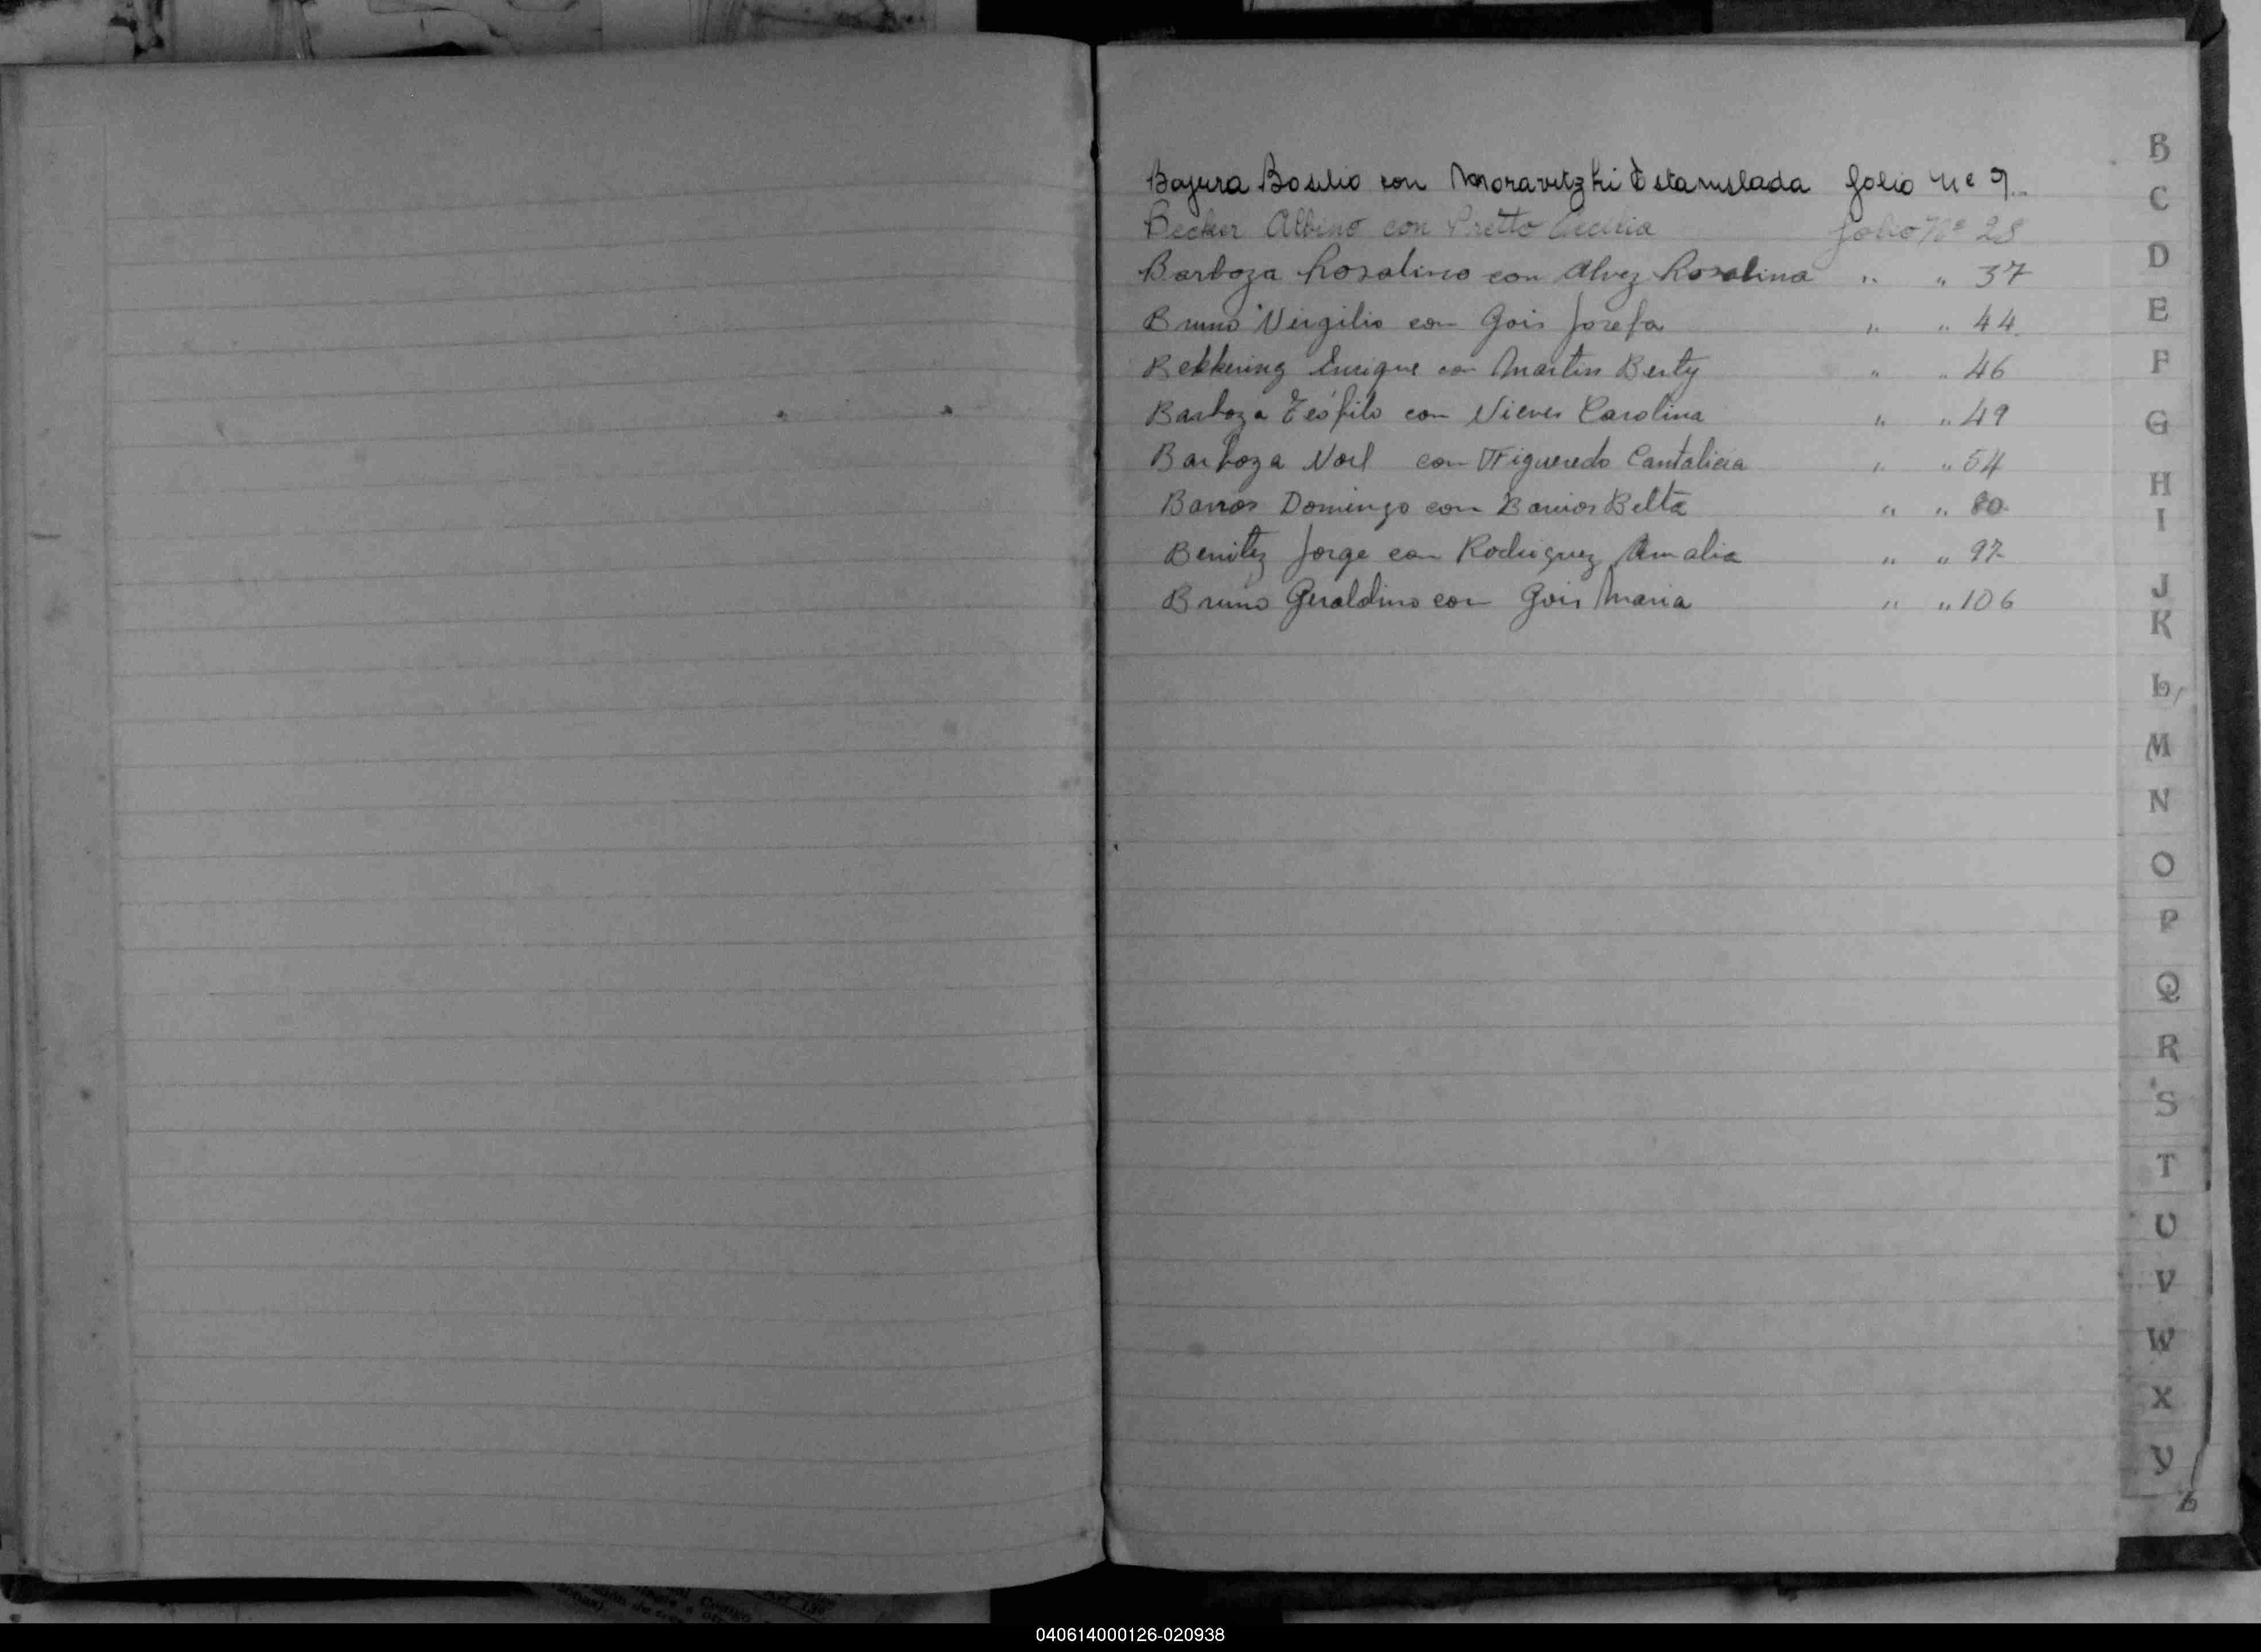 Bajura Basilio con Moravitzki Estanislada folio Nº 9
Becker Albino con Pretto Cecilia folio Nº 28
Barboza Rosalino con Alvez Rosalina " " 37
Bruno Virgilio con Gois Josefa " " 44
Bekkering Enrique con Martin Berty " " 46
Barboza Teófilo con Nieves Carolina " " 49
Barboza Noel con Figueredo Cantalicia " " 54
Barros Domingo con Barrios Belta " " 80
Benitez Jorge con Rodriguez Amalia " " 97
Bruno Geraldino con Gois Maria " " 106
B
C
D
E
F
G
H
I
J
K
L
M
N
O
P
Q
R
S
T
U
V
W
X
Y
Z
040614000126-020938